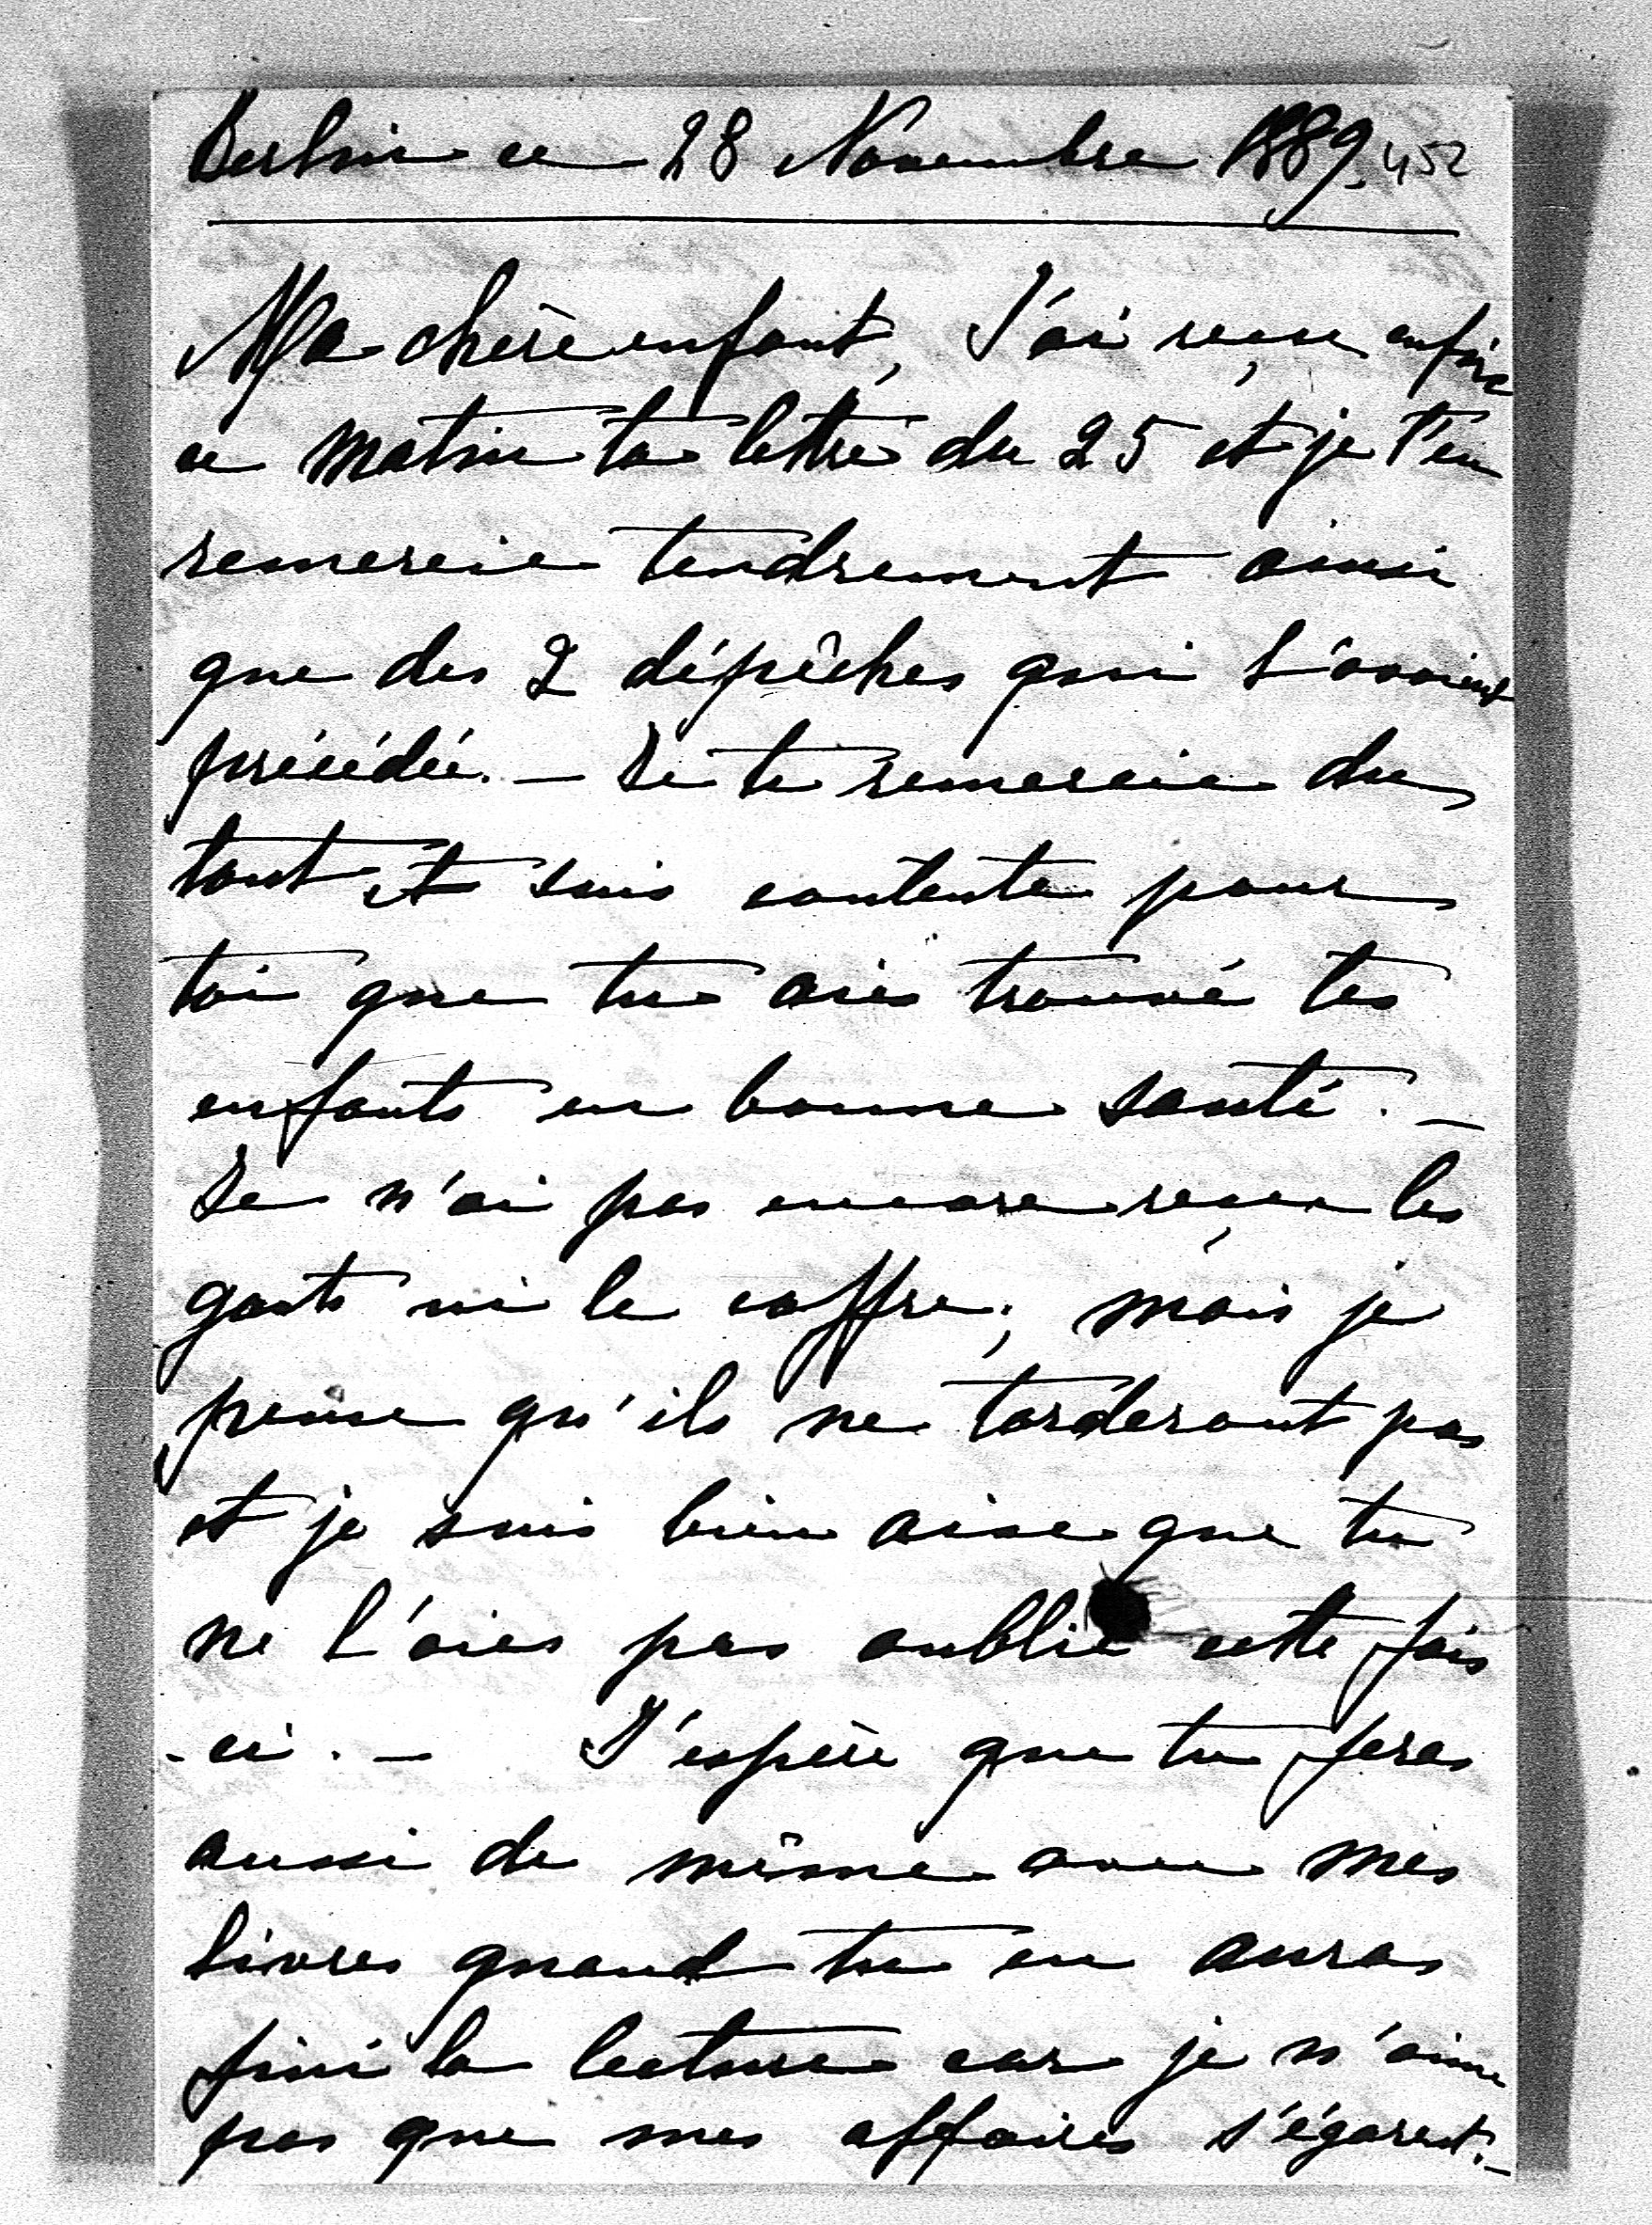 Berlin ce 28 Novembre 1889. 452
Ma chère enfant, J'ai reçu enfin
ce matin ta lettre du 25 et je t'en
remercie tendrement ainsi
que des 2 dépêches qui l'avaient
précédée. — Je te remercie du
tout et suis contente pour
toi que tu aies trouvé tes
enfants en bonne santé. —
Je n'ai pas encore reçu les
gants ni le coffre; mais je
pense qu'ils ne tarderont pas
et je suis bien aise que tu
ne l'aies pas oublié cette fois
-ci. — J'espère que tu feras
aussi de même avec mes
livres quand tu en auras
fini la lecture car je n'aime
pas que mes affaires s'égarent. —